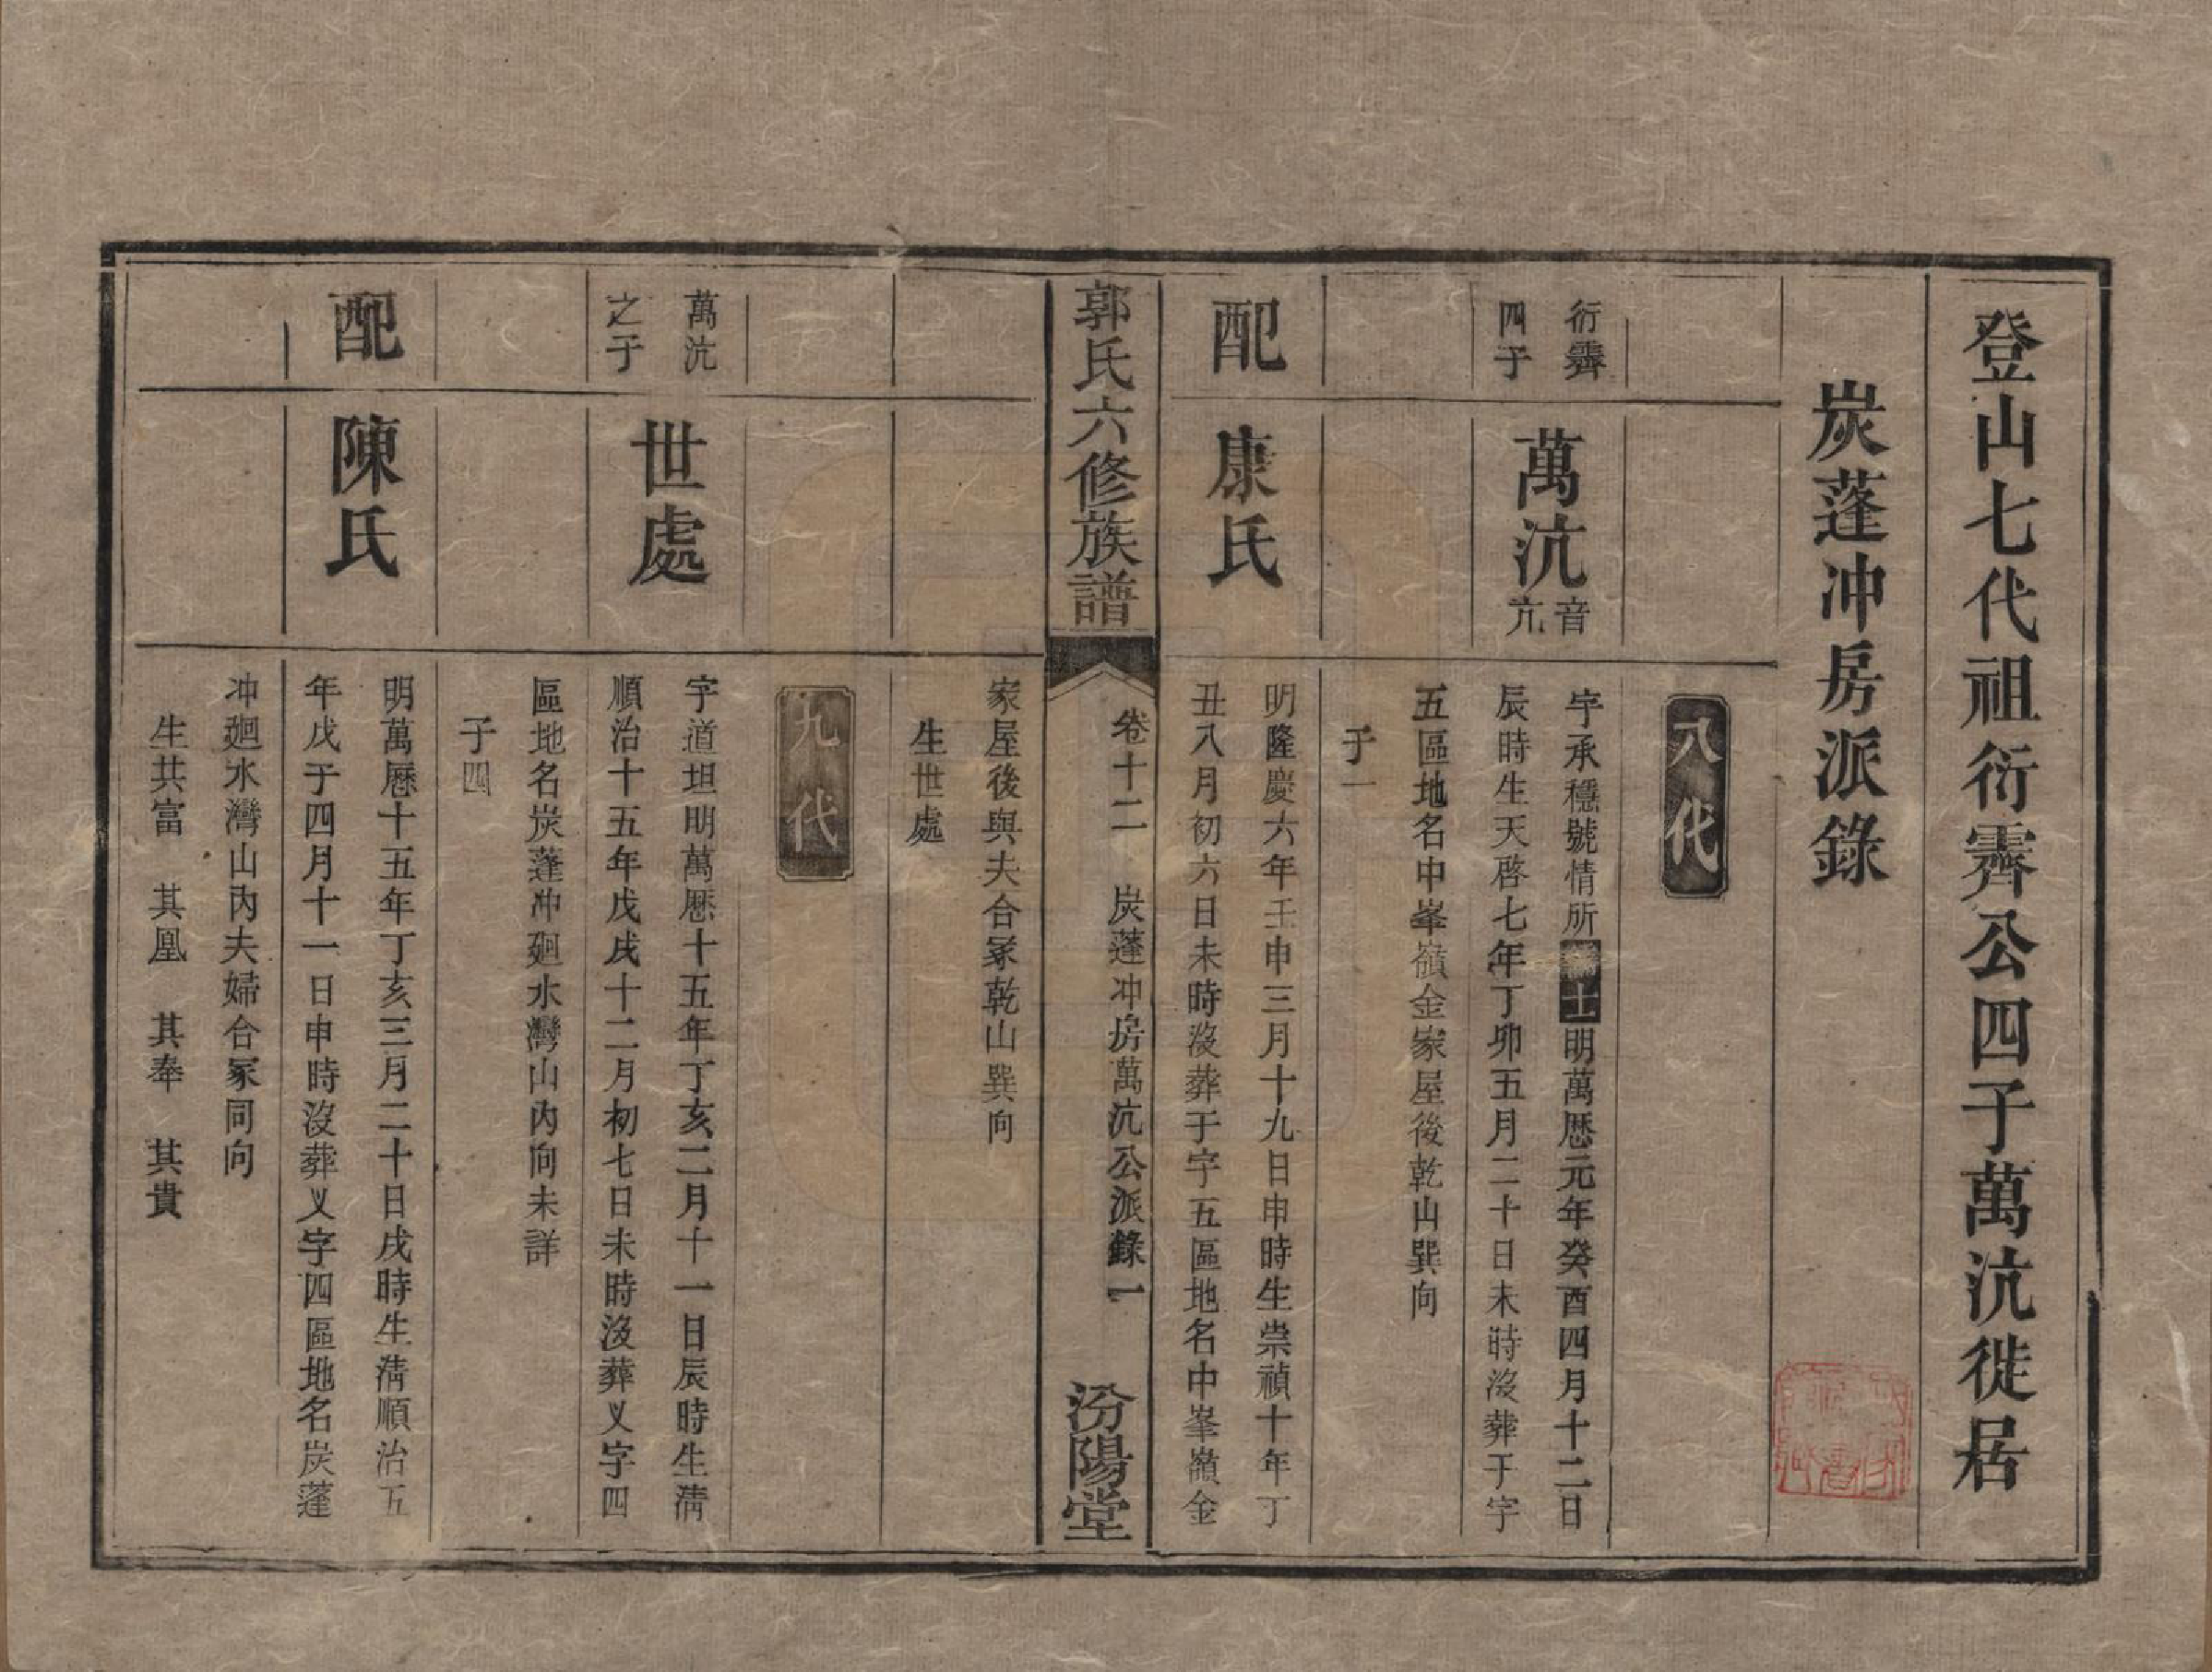 登山七代祖衍霽公四子萬沆徙居
炭蓬冲房派錄
八代
衍霽
四子
萬沆
音
亢
字承穩號情所
明萬歷元年癸酉四月十二日
辰時生天啓七年丁卯五月二十日未時沒葬于字
五區地名中峯嶺金家屋後乾山巽向
子一
配
康氏
明隆慶六年壬申三月十九日申時生崇禎十年丁
丑八月初六日未時沒葬于字五區地名中峯嶺金
郭氏六修族譜
卷十二
炭蓬冲房萬沆公派錄一
汾陽堂
家屋後與夫合冢乾山巽向
生世處
九代
萬沆
之子
世處
字道坦明萬歷十五年丁亥二月十一日辰時生清
順治十五年戊戌十二月初七日未時沒葬乂字四
區地名炭蓬冲廻水灣山內向未詳
子四
配
陳氏
明萬歷十五年丁亥三月二十日戌時生清順治五
年戊子四月十一日申時沒葬乂字四區地名炭蓬
冲廻水灣山內夫婦合冢同向
生其富 其凰 其奉 其貴